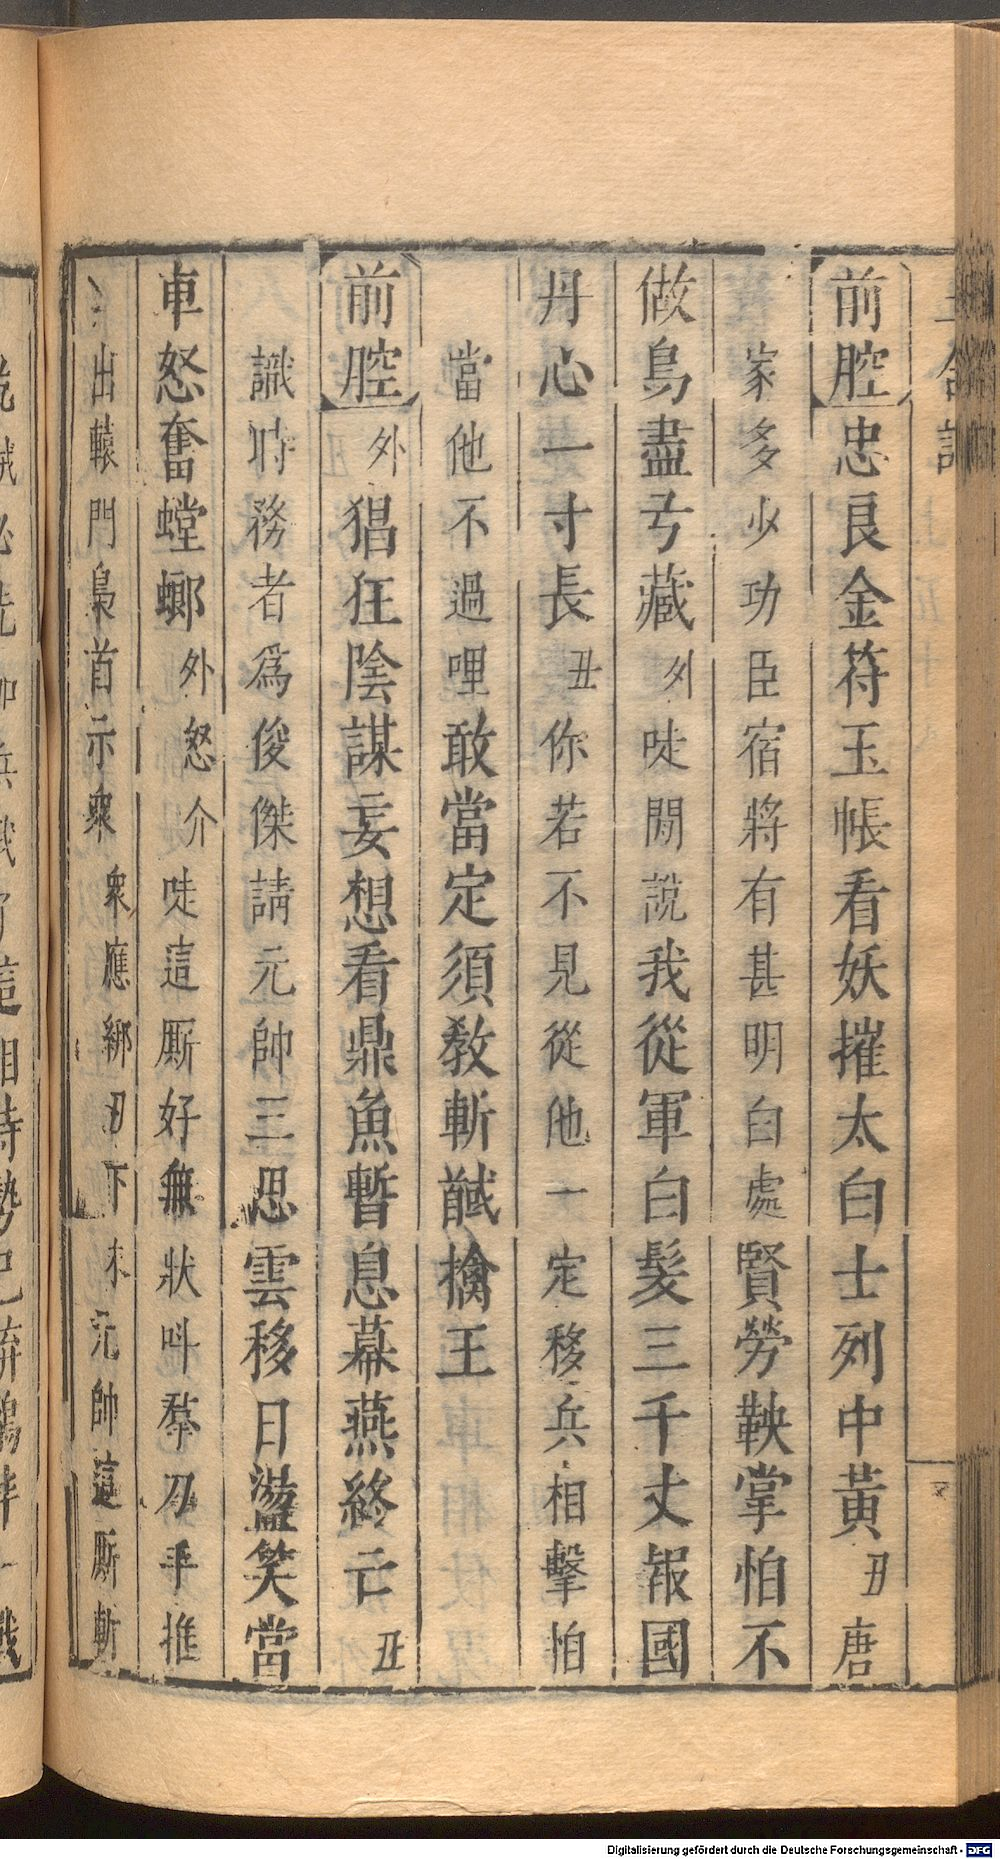 前腔忠良金符玉帳看妖摧太白士列中黃丑唐
家多少功臣宿將有甚明白處賢勞鞅掌怕不
做鳥盡弓藏外唗閒說我從軍白髮三千丈報國
丹心一寸長丑你若不見從他一定移兵相擊怕
當他不過哩敢當定須教斬馘擒王
前腔外猖狂陰謀妄想看鼎魚暫息幕燕終亡丑
識時務者爲俊傑請元帥三思雲移日盪笑當
車怒奮螳螂外怒介唗這厮好無狀呌羣刀手推
出轅門梟首示衆衆應綁丑下末元帥這厮斬
Digitalisierung gefördert durch die Deutsche Forschungsgemeinschaft - DFG